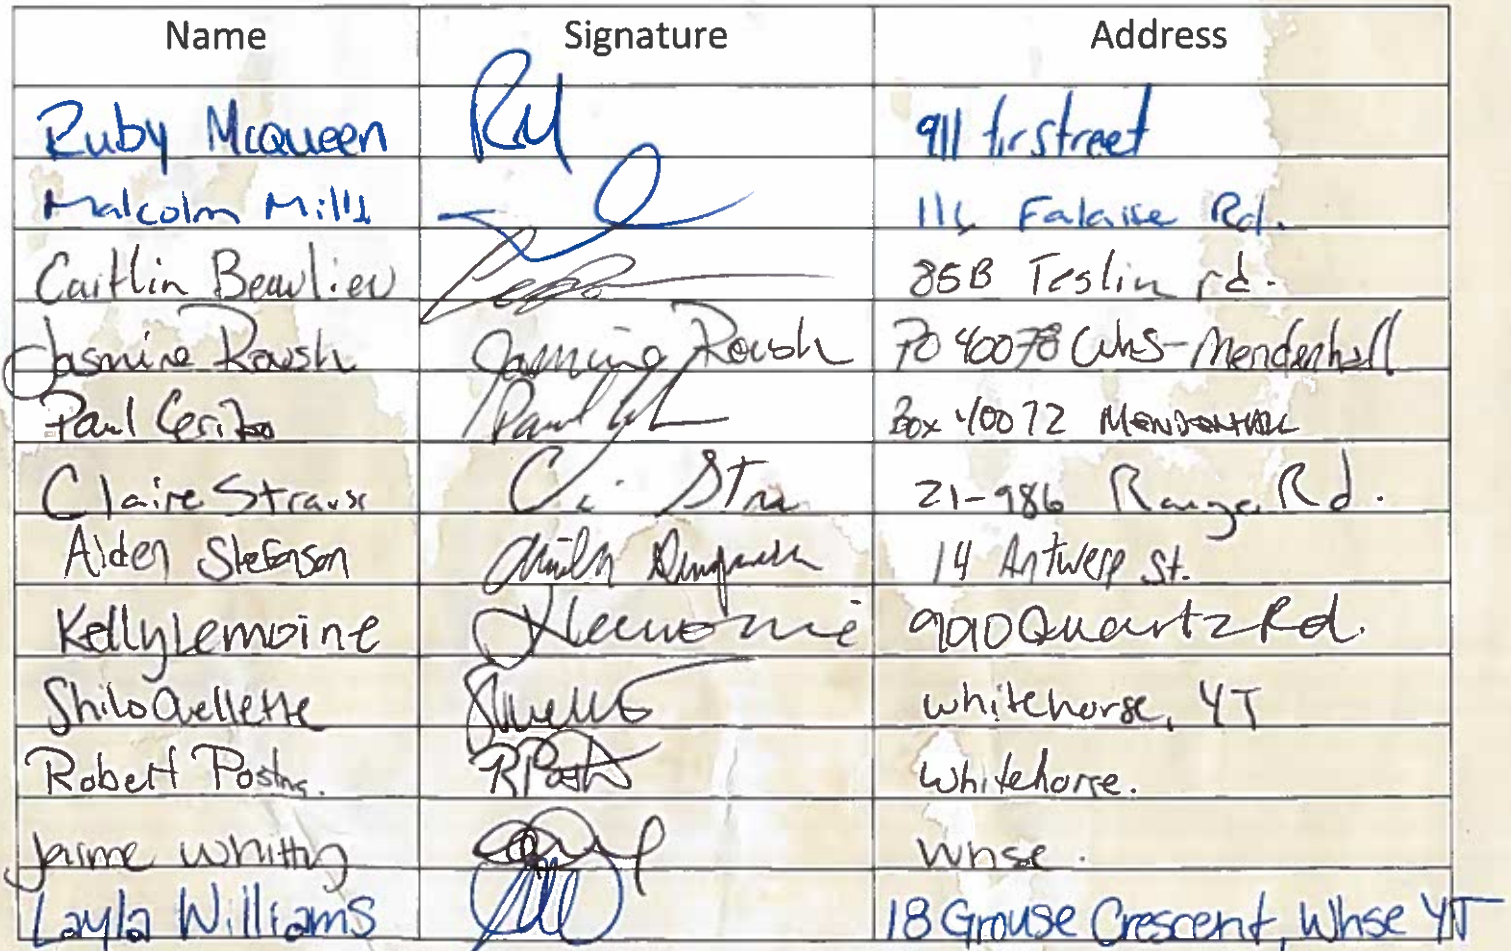 Name Signature Address
Ruby McQueen RM 911 fir street
Malcolm Mills 116 Falaise Rd.
Caitlin Beaulieu 85B Teslin rd.
Jasmine Roush Jasmine Roush PO 40078 Whs-Mendenhall
Paul Paul Box 40072 MENDENHALL
Claire Strauss 21-986 Range Rd.
Aiden Stefanson 14 Antwerp St.
Kelly Lemoine KLemoine Quartz Rd.
Shilo Ouellette whitehorse, YT
Robert Postma. RPost Whitehorse.
Jaime Whitty Whse.
Layla Williams 18 Grouse Crescent, Whse YT